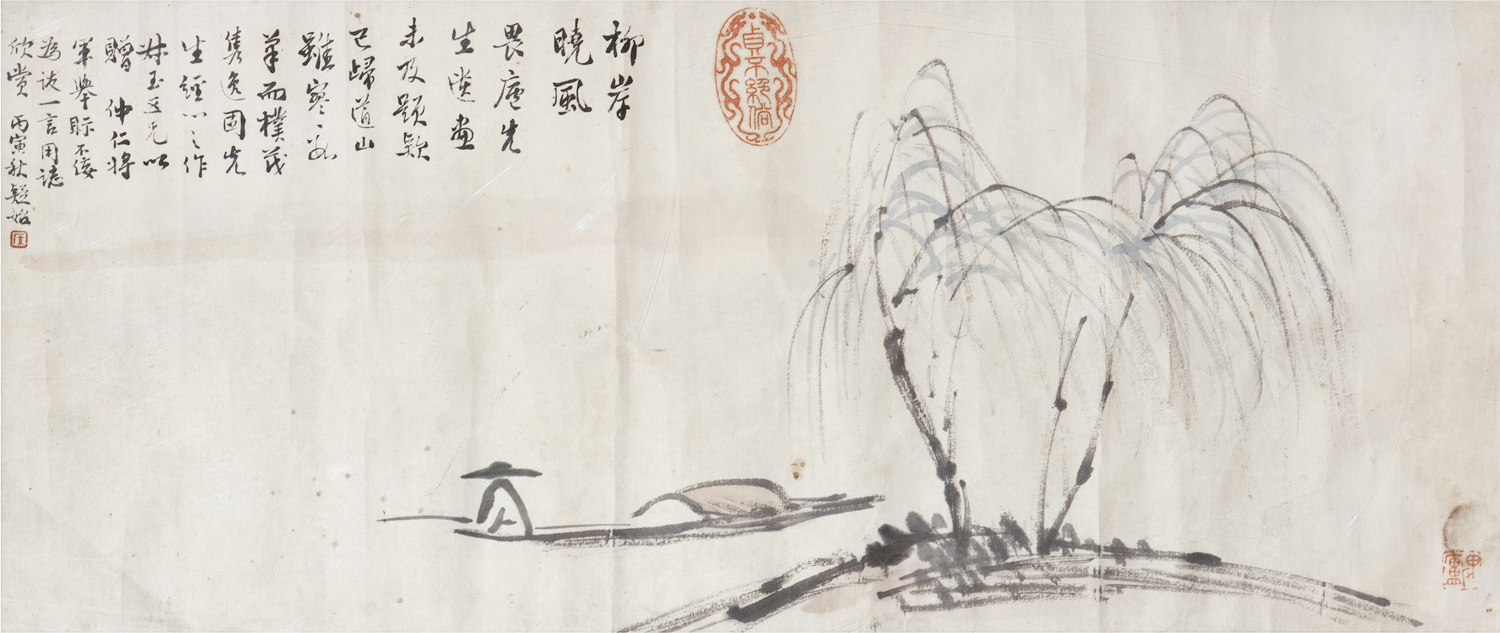 柳岸
曉風
畏廬先
生遺畫
未及題款
已歸道山
雖寥寥
筆而樸茂
雋逸固先
生經心之作
叔玉五兄以
贈 仲仁將
軍舉眎不佞
為識一言用誌
欣賞 丙寅秋
貞不絕俗
畏廬